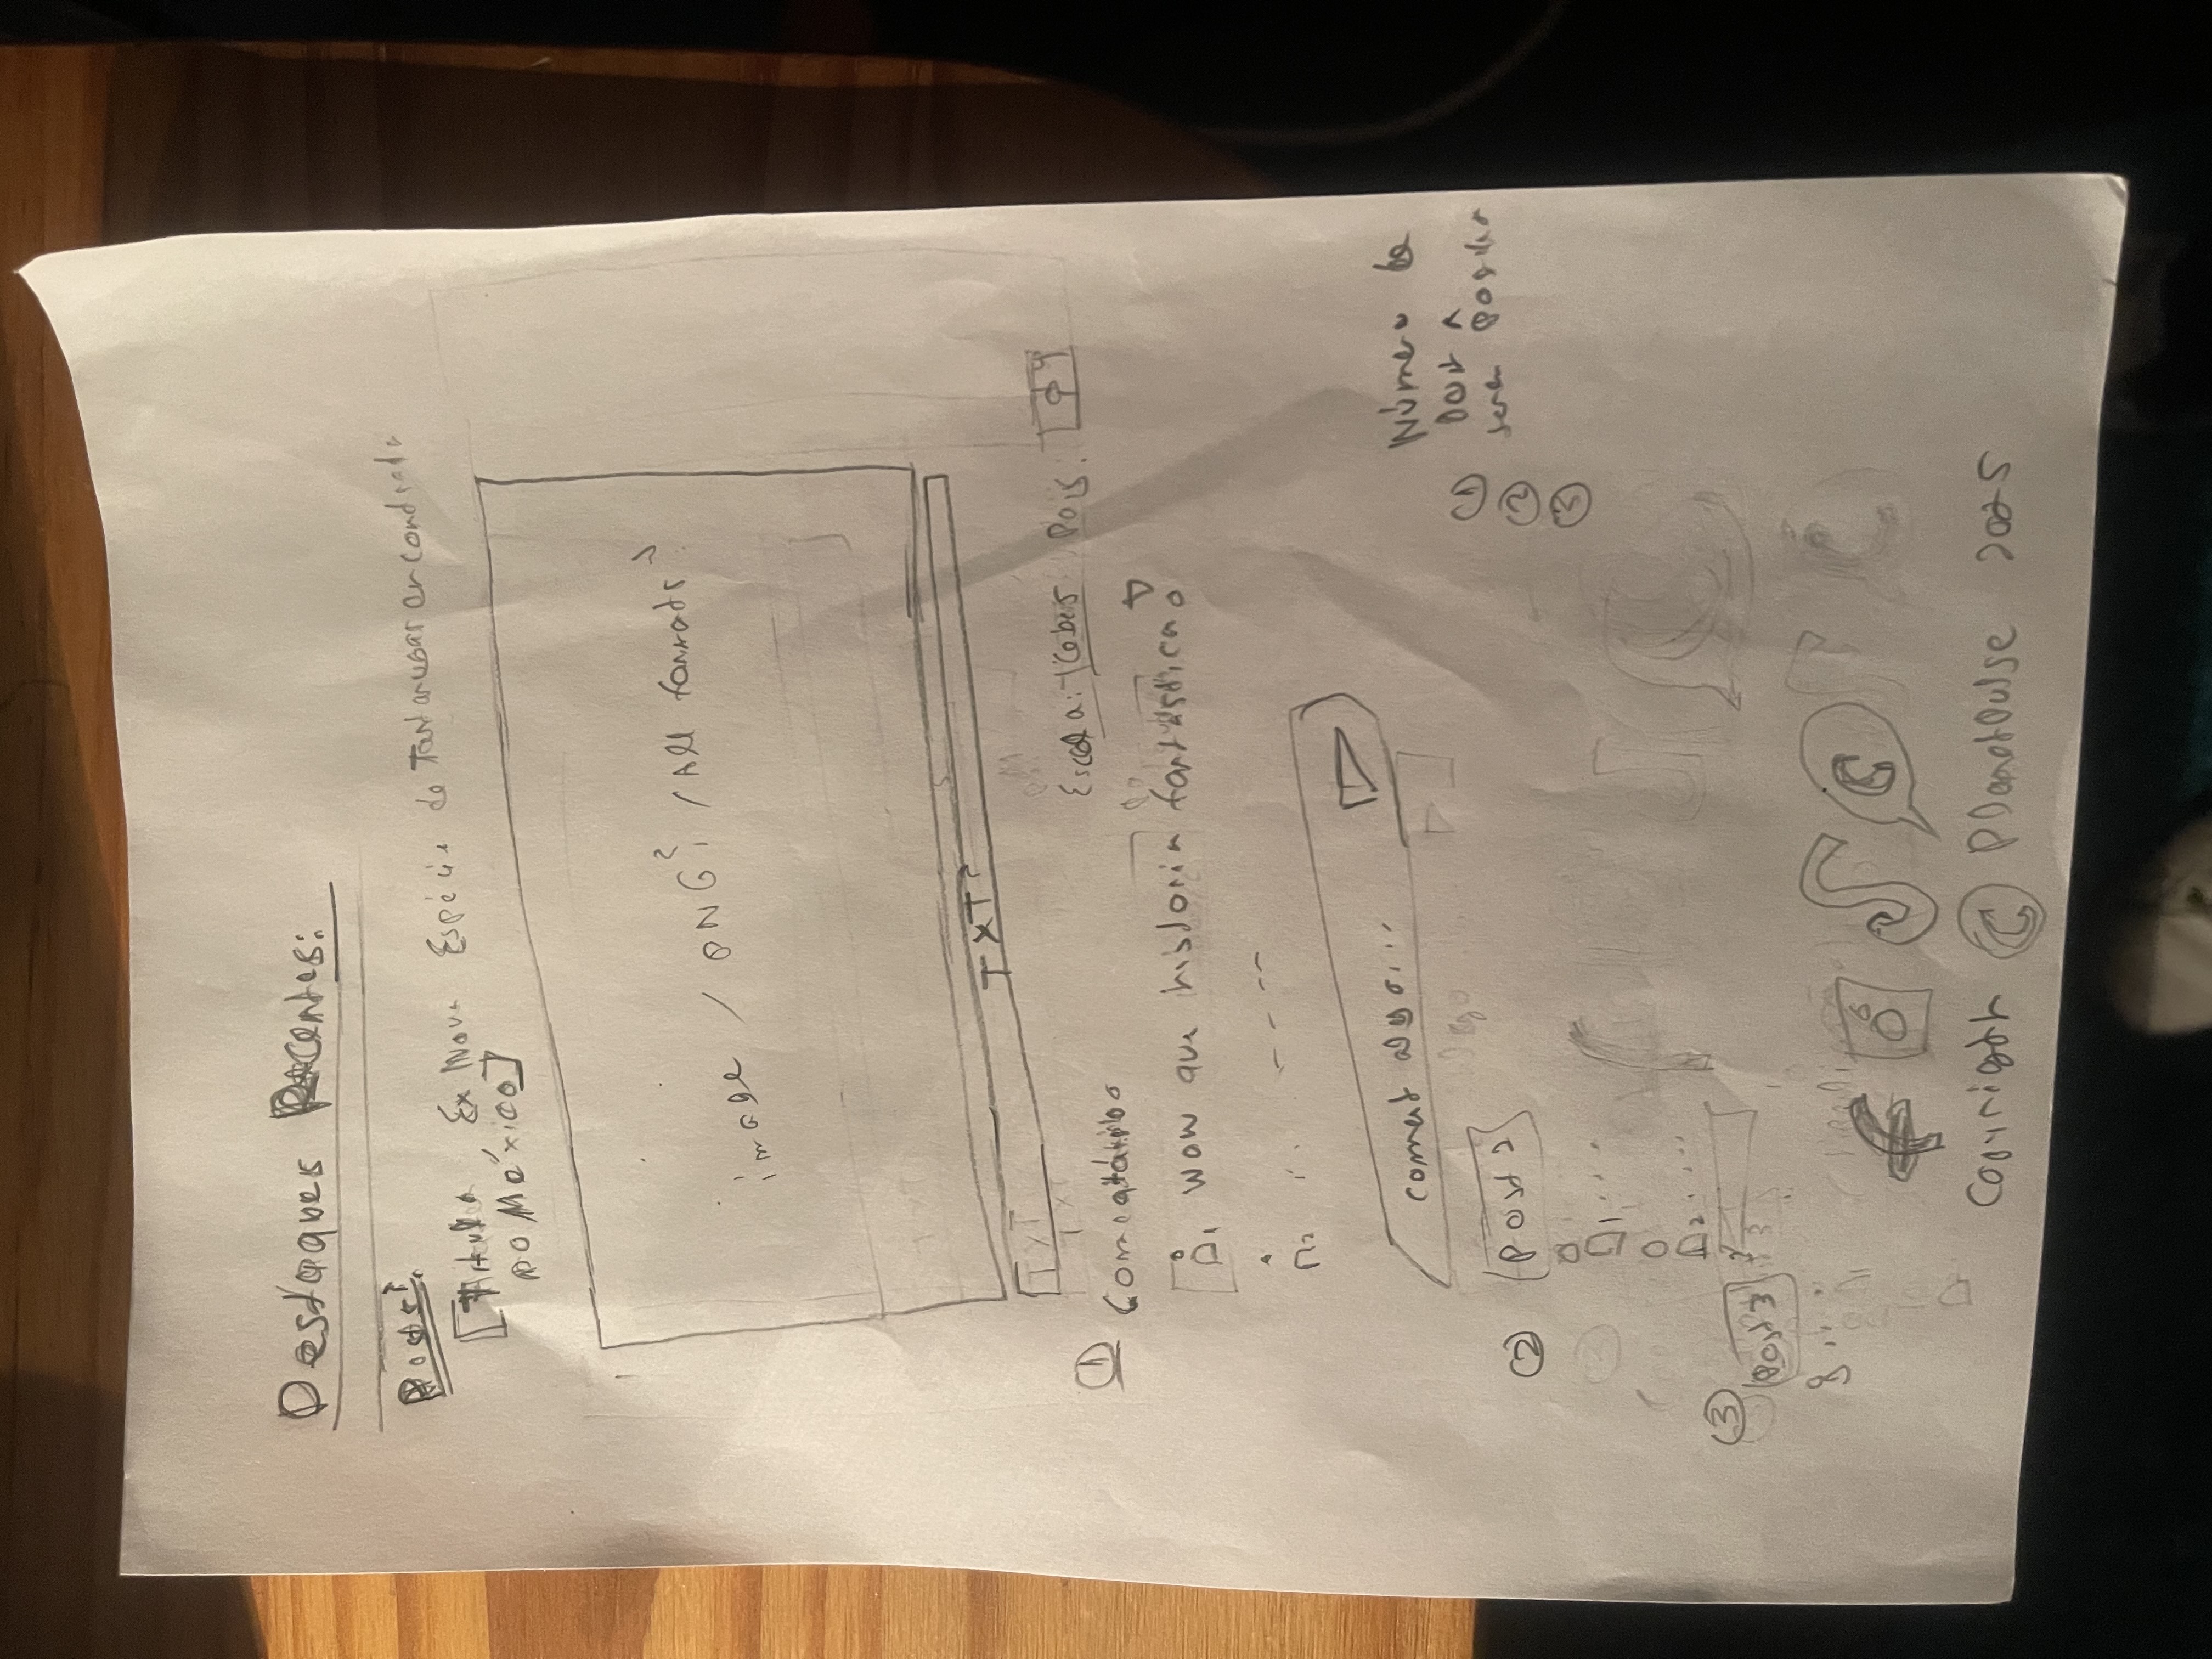 Destaques Recentes:
Posts:
[Título, Ex Nova Espécie de Tartarugas encontrada
no México]
image / PNG? / All formats?
TXT?
TXT
Escola: País:
1 Comentários
1 wow que historia fantástica!
2 ... ----
coment algo...
2 Post 2
1 ...
2 ....
3 Post 3
Número de
1 Post a
2 serem
3
Copyright © PlanetPulse 2025